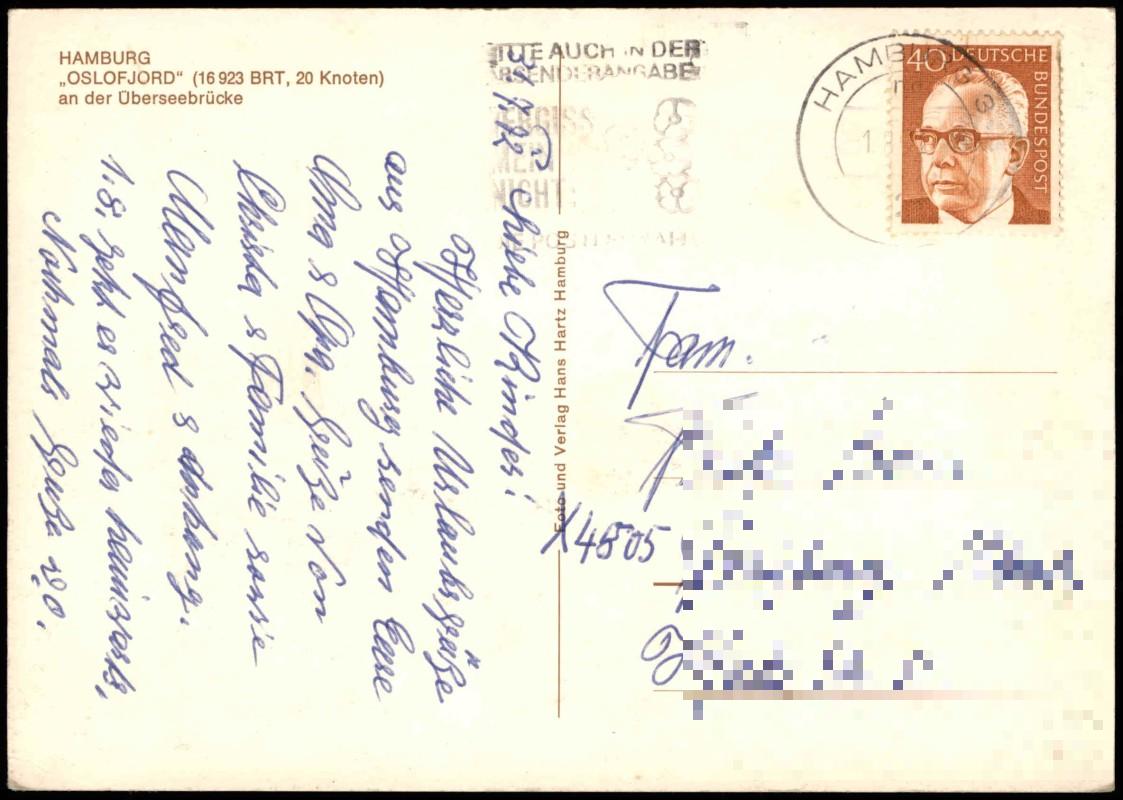 HAMBURG
„OSLOFJORD" (16 923 BRT, 20 Knoten)
an der Überseebrücke
BITTE AUCH IN DER
ABSENDERANGABE
VERGISS
MEIN
NICHT:
HAMBURG
40 DEUTSCHE
BUNDESPOST
Foto und Verlag Hans Hartz Hamburg
Liebe Kinder!
Herzliche Urlaubsgrüße
aus Hamburg senden Eure
Oma & Opa. Grüße von
Christa & Familie sowie
Manfred &
1.8. geht es wieder heimwärts,
Nochmals Grüße
Fam.
4505